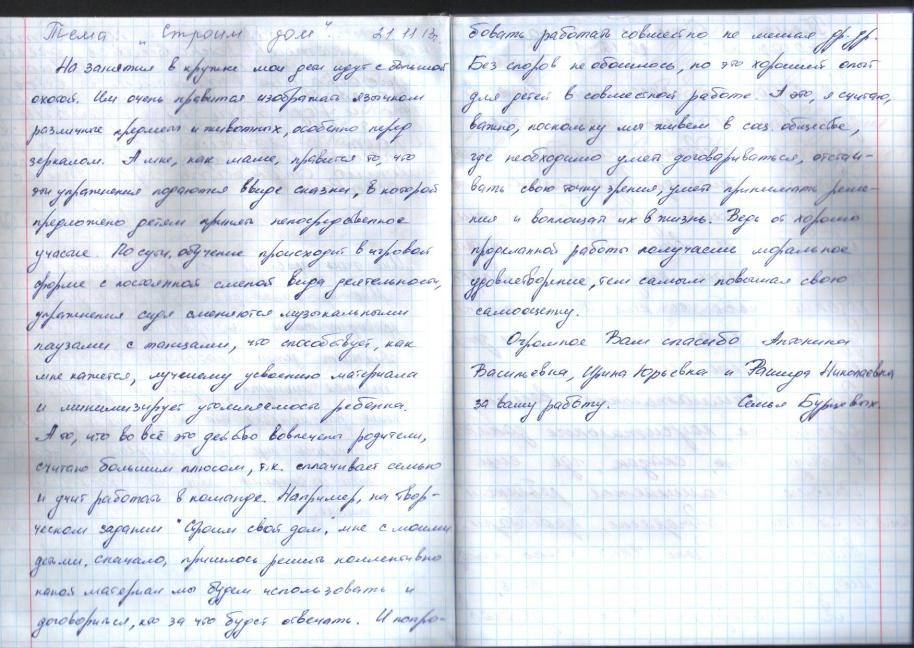 Тема „Строим дом". 21.11.13г.
На занятия в кружке мои дети идут с большой
охотой. Им очень нравится изображать язычком
различные предметы и животных, особенно перед
зеркалом. А мне, как маме, нравится то, что
эти упражнения подаются ввиде сказки, в которой
предложено детям принять непосредственное
участие. По сути, обучение происходит в игровой
форме с постоянной сменой вида деятельности,
упражнения сидя сменяются музыкальными
паузами с танцами, что способствует, как
мне кажется, лучшему усвоению материала
и минимизирует утомляемость ребенка.
А то, что во всё это действо вовлечены родители,
считаю большим плюсом, т.к. сплачивает семью
и учит работать в команде. Например, на твор-
ческом задании "Строим свой дом", мне с моими
детьми, сначало, пришлось решить коллективно
какой материал мы будем использовать и
договориться, кто за что будет отвечать. И попро-
бовать работать совместно не мешая др. др.
Без споров не обошлось, но это хороший опыт
для детей в совместной работе. А это, я считаю,
важно, поскольку мы живем в соц. обществе,
где необходимо уметь договариваться, отстаи-
вать свою точку зрения, уметь принимать реше-
ния и воплощать их в жизнь. Ведь от хорошо
проделанной работы получаем моральное
удовлетворение, тем самым повышая свою
самооценку.
Огромное Вам спасибо Антонина
Васильевна, Ирина Юрьевна и Рашида Николаевна
за вашу работу. Семья Бурцевых.